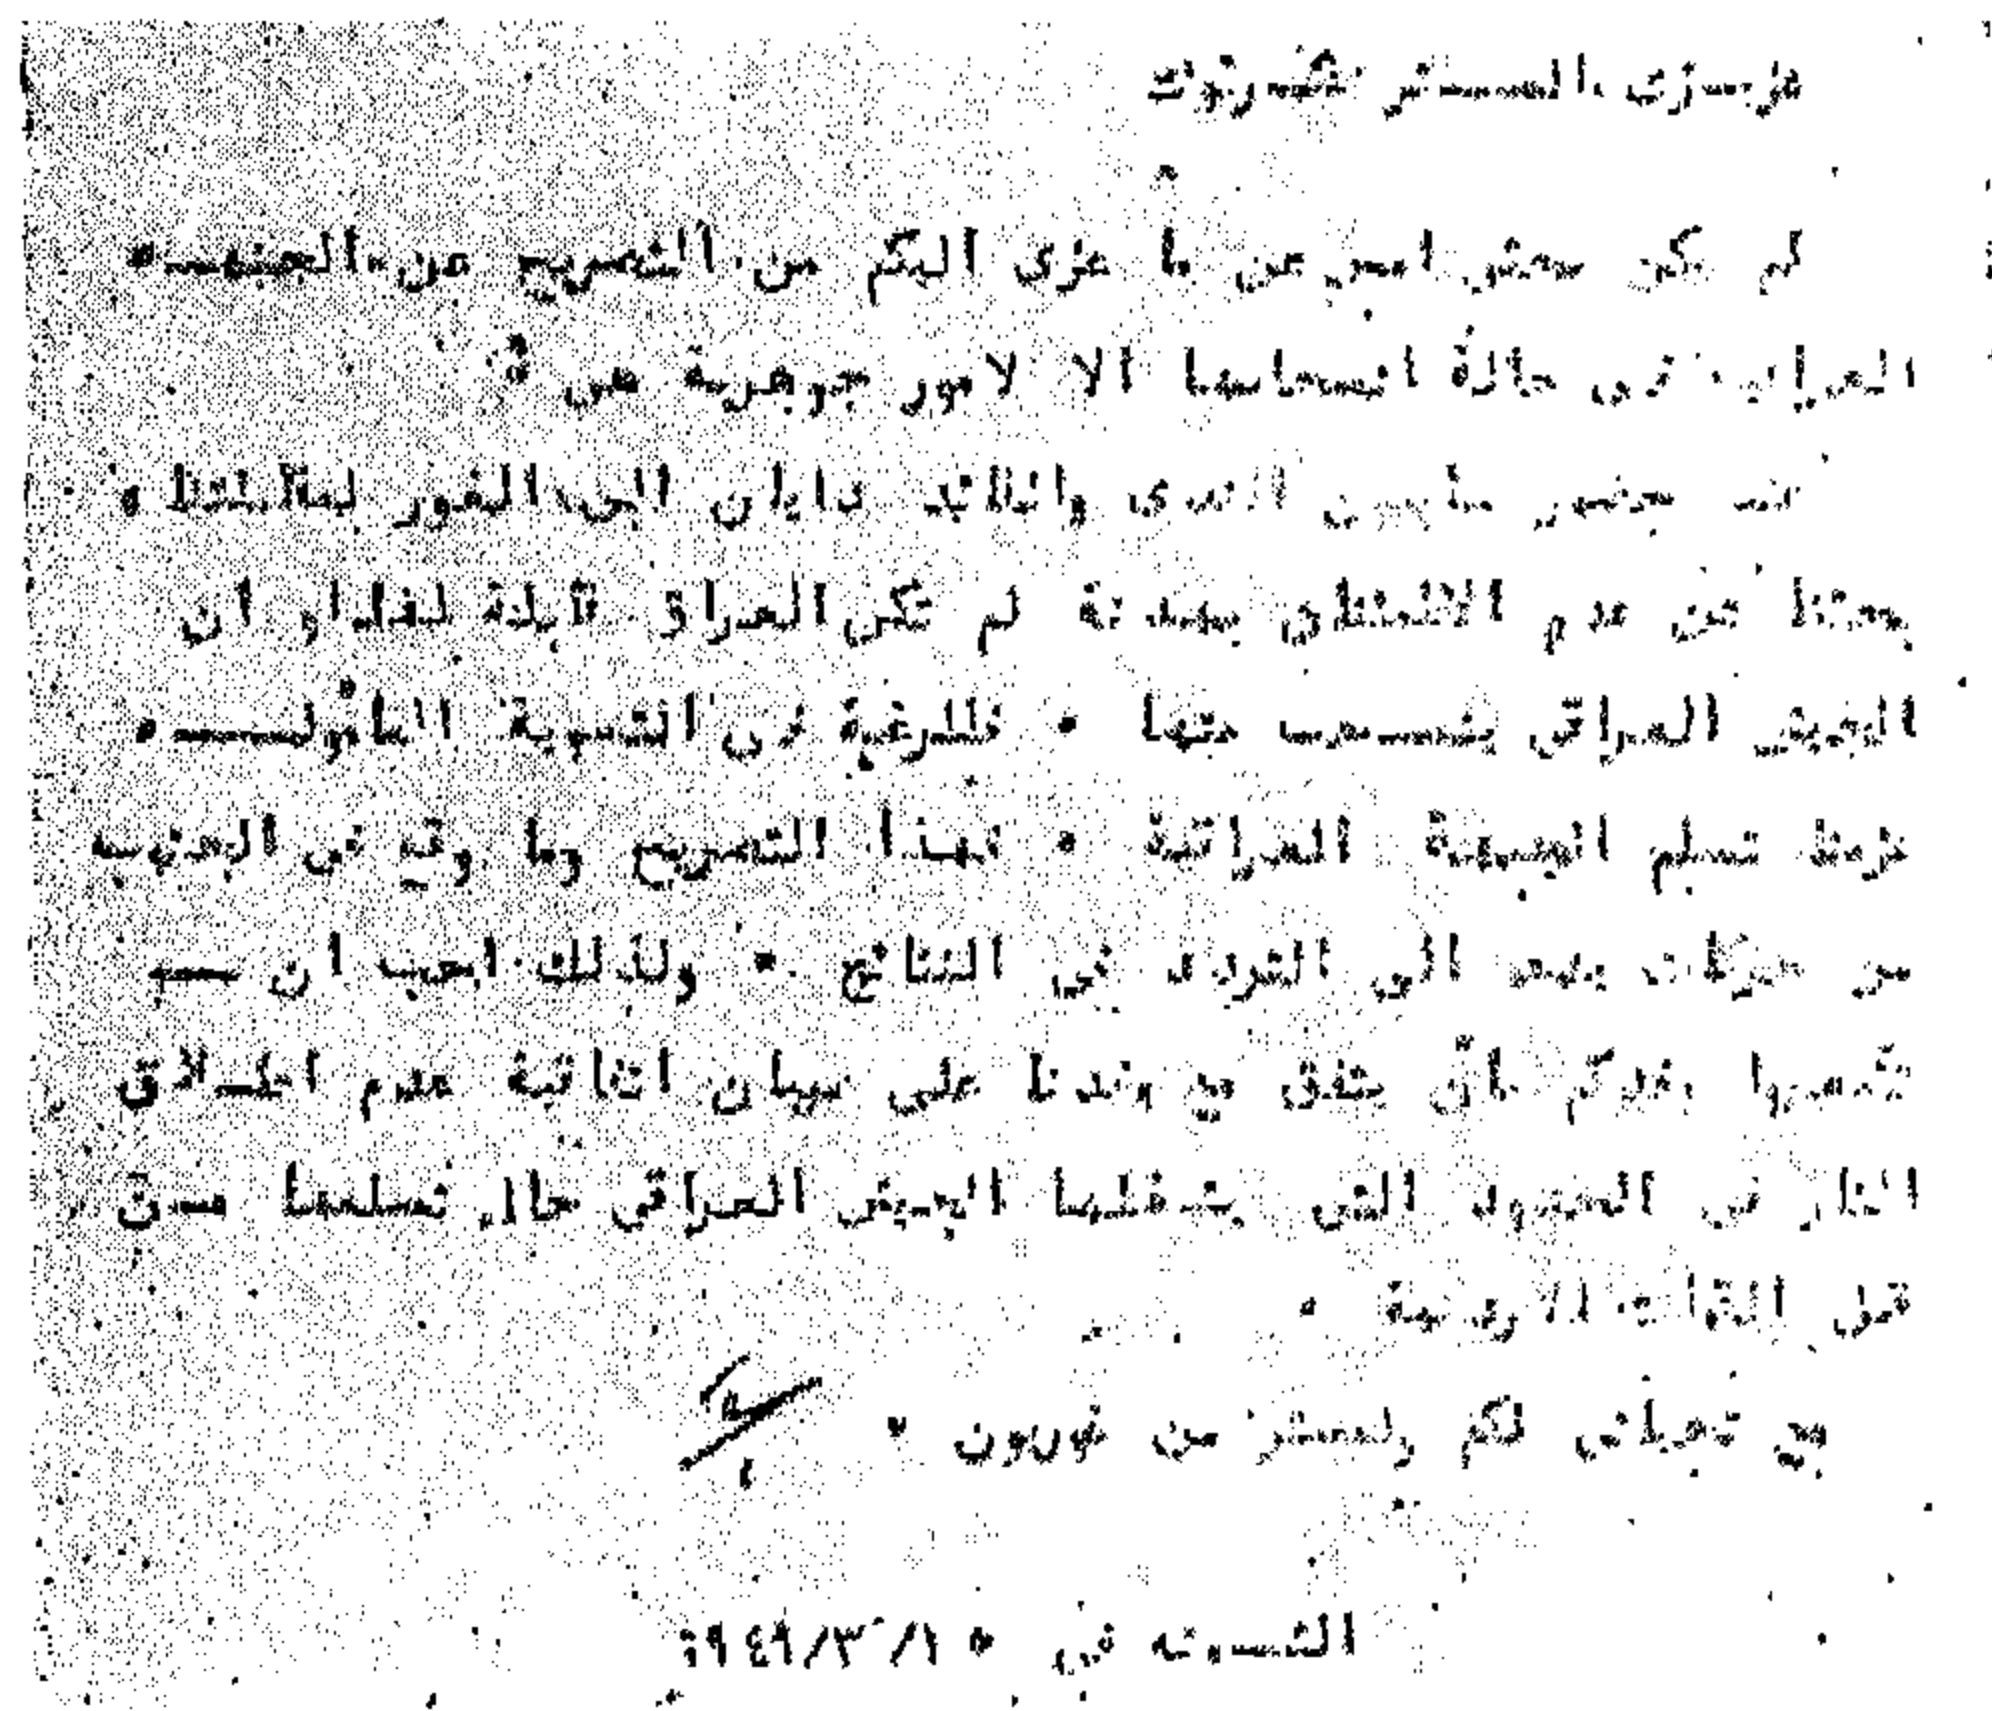 عزيزى المستر شرتوك
لم يكن بحثى امس عن ما عزى اليكم من التصريح عن الجبهه
العراقيه فى حالة انسحابها الا لامور جوهرية هى :
عند حضور ساسون افندى والقائد دايان الى الغور لمقابلتنا
بحثنا عن عدم الاكتفاى بهدنة لم تكن العراق قابلة لها او ان
الجيش العراقى ينسحب منها • فللرغبة فى التسوية المأموله
نرضا تسلم الجبهة العراقية • فهذا التصريح وما وقع فى الجنوب
من حركات يدعو الى التردد فى النتائج • ولذلك احب ان
وفدكم بأن يتفق مع وفدنا على سريان اتفاقية عدم اطلاق
النار فى الحدود التى يشغلها الجيش العراقى حال تسلمها من
قبل القوات الاردنية •
مع تحياتى لكم وللمستر بن غوريون •
الشونه فى ١٩٤٩/٣/١٠